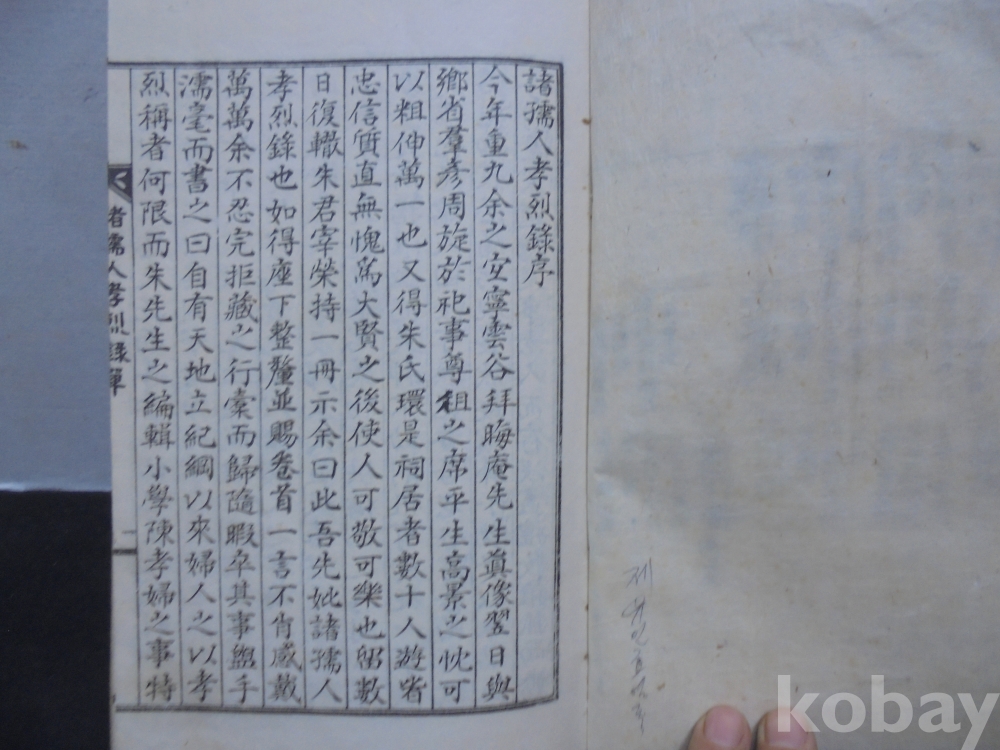 諸孺人孝烈錄序
今年重九余之安寧雲谷拜晦庵先生眞像翌日與
鄉省羣彦周旋於祀事尊祖之席平生高景之忱可
以粗伸萬一也又得朱氏環是祠居者數十人遊皆
忠信質直無愧爲大賢之後使人可敬可樂也留數
日復轍朱君宰榮持一冊示余曰此吾先妣諸孺人
孝烈錄也如得座下整釐並賜卷首一言不肖感戴
萬萬余不忍完拒藏之行槖而歸隨暇卒其事盥手
濡毫而書之曰自有天地立紀綱以來婦人之以孝
烈稱者何限而朱先生之編輯小學陳孝婦之事特
諸孺人孝烈錄單
一
제유인효열록
kobay